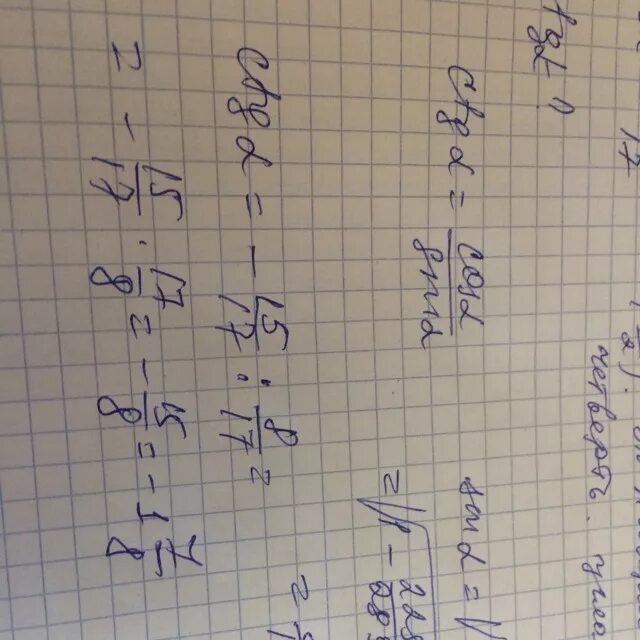 17
2). четверть. угла
tgα ?
ctgα = cosα / sinα
sinα = √
= √ 1 - 225 / 289
ctgα = - 15/17 : 8/17 =
= - 15/17 · 17/8 = - 15/8 = - 1 7/8